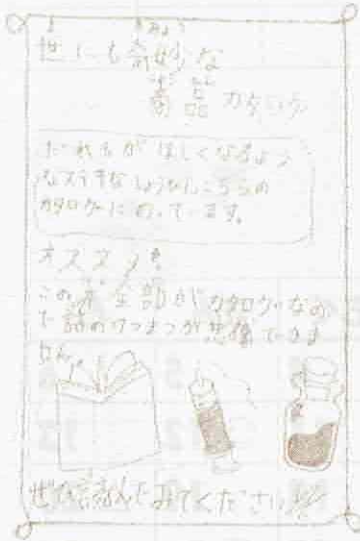 世にも奇妙な
商品カタログ
だれもがほしくなるよう
なステキなしょうひんこちらの
カタログにのっています。
オススメ
この本全部がカタログなの
で話のけつまつが想像できま
せん。
ぜひ読んでみてください